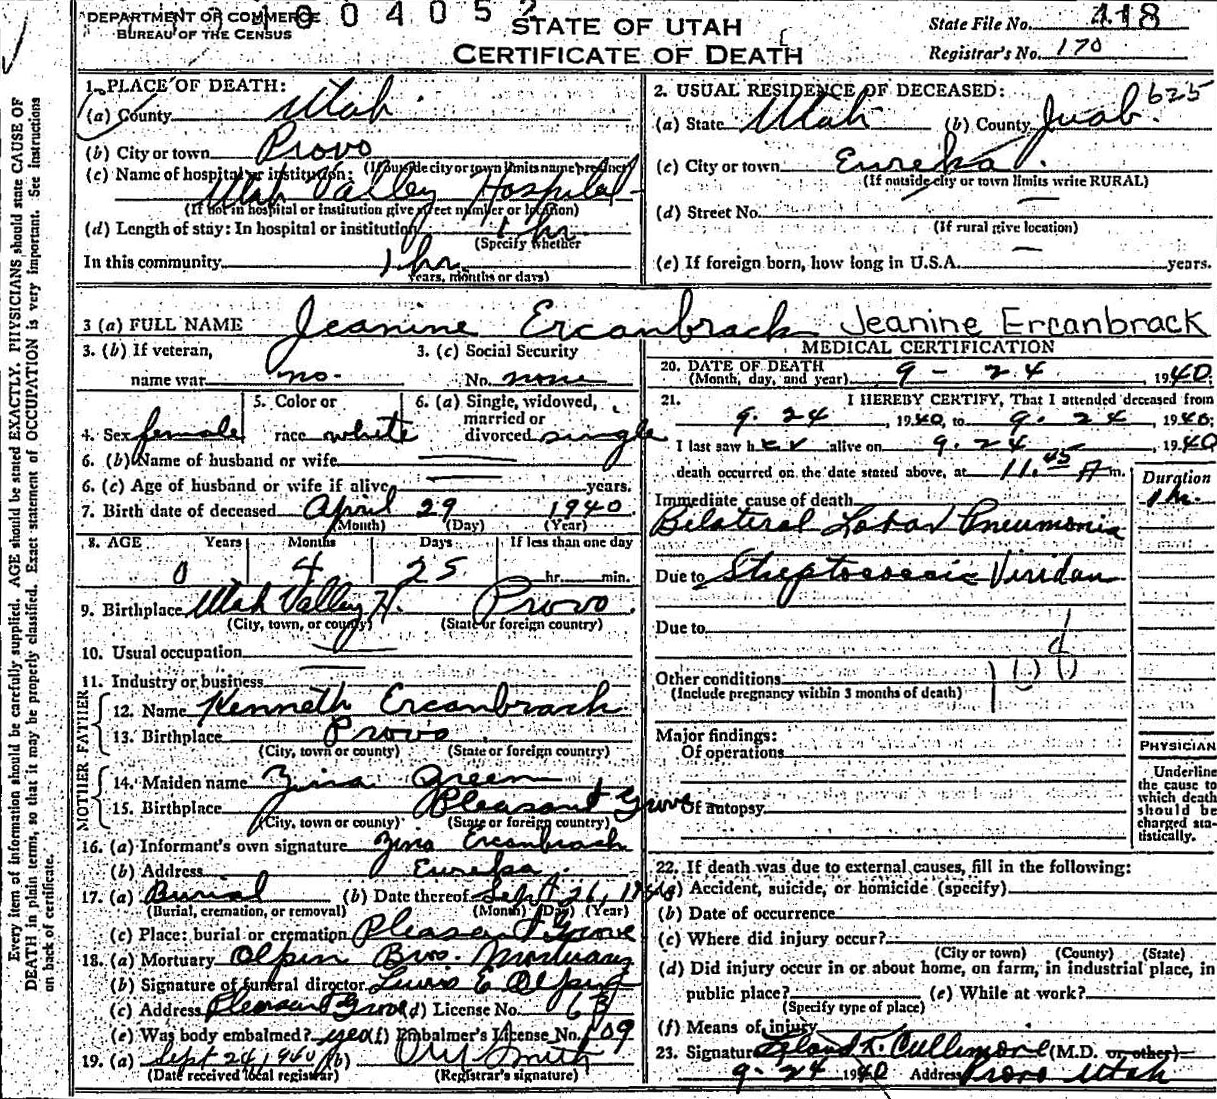 DEPARTMENT OF COMMERCE
BUREAU OF THE CENSUS
004052
STATE OF UTAH
CERTIFICATE OF DEATH
State File No. 418
Registrar's No. 170
Every item of information should be carefully supplied. AGE should be stated EXACTLY. PHYSICIANS should state CAUSE OF
DEATH in plain terms, so that it may be properly classified. Exact statement of OCCUPATION is very important. See instructions
on back of certificate.
1. PLACE OF DEATH:
(a) County Utah
(b) City or town Provo
(If outside city or town limits name precinct)
(c) Name of hospital or institution:
Utah Valley Hospital
(If not in hospital or institution give street number or location)
(d) Length of stay: In hospital or institution 1 hr.
(Specify whether
In this community 1 hr.
years, months or days)
2. USUAL RESIDENCE OF DECEASED: 625
(a) State Utah (b) County Juab.
(c) City or town Eureka.
(If outside city or town limits write RURAL)
(d) Street No. —
(If rural give location)
(e) If foreign born, how long in U.S.A. — years.
3 (a) FULL NAME Jeanine Ercanbrack Jeanine Ercanbrack
3. (b) If veteran,
name war no.
3. (c) Social Security
No. none
4. Sex female
5. Color or
race white
6. (a) Single, widowed,
married or
divorced single
6. (b) Name of husband or wife
6. (c) Age of husband or wife if alive years.
7. Birth date of deceased April 29 1940
(Month) (Day) (Year)
8. AGE Years Months Days If less than one day
0 4 25 hr. min.
9. Birthplace Utah Valley H. Provo.
(City, town, or county) (State or foreign country)
10. Usual occupation
11. Industry or business
FATHER
12. Name Kenneth Ercanbrack
13. Birthplace Provo
(City, town or county) (State or foreign country)
MOTHER
14. Maiden name Zina Green
15. Birthplace Pleasant Grove
(City, town or county) (State or foreign country)
16. (a) Informant's own signature Zina Ercanbrack
(b) Address Eureka.
17. (a) Burial (b) Date thereof Sept 26, 1940
(Burial, cremation, or removal) (Month) (Day) (Year)
(c) Place: burial or cremation Pleasant Grove
18. (a) Mortuary Olpin Bros. Mortuary
(b) Signature of funeral director Lewis E Olpin
(c) Address Pleasant Grove (d) License No.
(e) Was body embalmed? yes (f) Embalmer's License No. 109
19. (a) Sept 24, 1940 (b) Smith
(Date received local registrar) (Registrar's signature)
MEDICAL CERTIFICATION
20. DATE OF DEATH
(Month, day, and year) 9 - 24, 1940;
21. I HEREBY CERTIFY, That I attended deceased from
9. 24, 1940, to 9. 24, 1940;
I last saw her alive on 9. 24, 1940
death occurred on the date stated above, at 11.45 A m.
Duration
Immediate cause of death 1 hr.
Bilateral Lobar Pneumonia
Due to Streptococcic Viridan
Due to
Other conditions
(Include pregnancy within 3 months of death)
Major findings:
Of operations
Of autopsy
PHYSICIAN
Underline
the cause to
which death
should be
charged sta-
tistically.
22. If death was due to external causes, fill in the following:
(a) Accident, suicide, or homicide (specify)
(b) Date of occurrence
(c) Where did injury occur?
(City or town) (County) (State)
(d) Did injury occur in or about home, on farm, in industrial place, in
public place? (e) While at work?
(Specify type of place)
(f) Means of injury
23. Signature Leland K. Cullimore (M.D. or other)
9-24 1940 Address Provo Utah